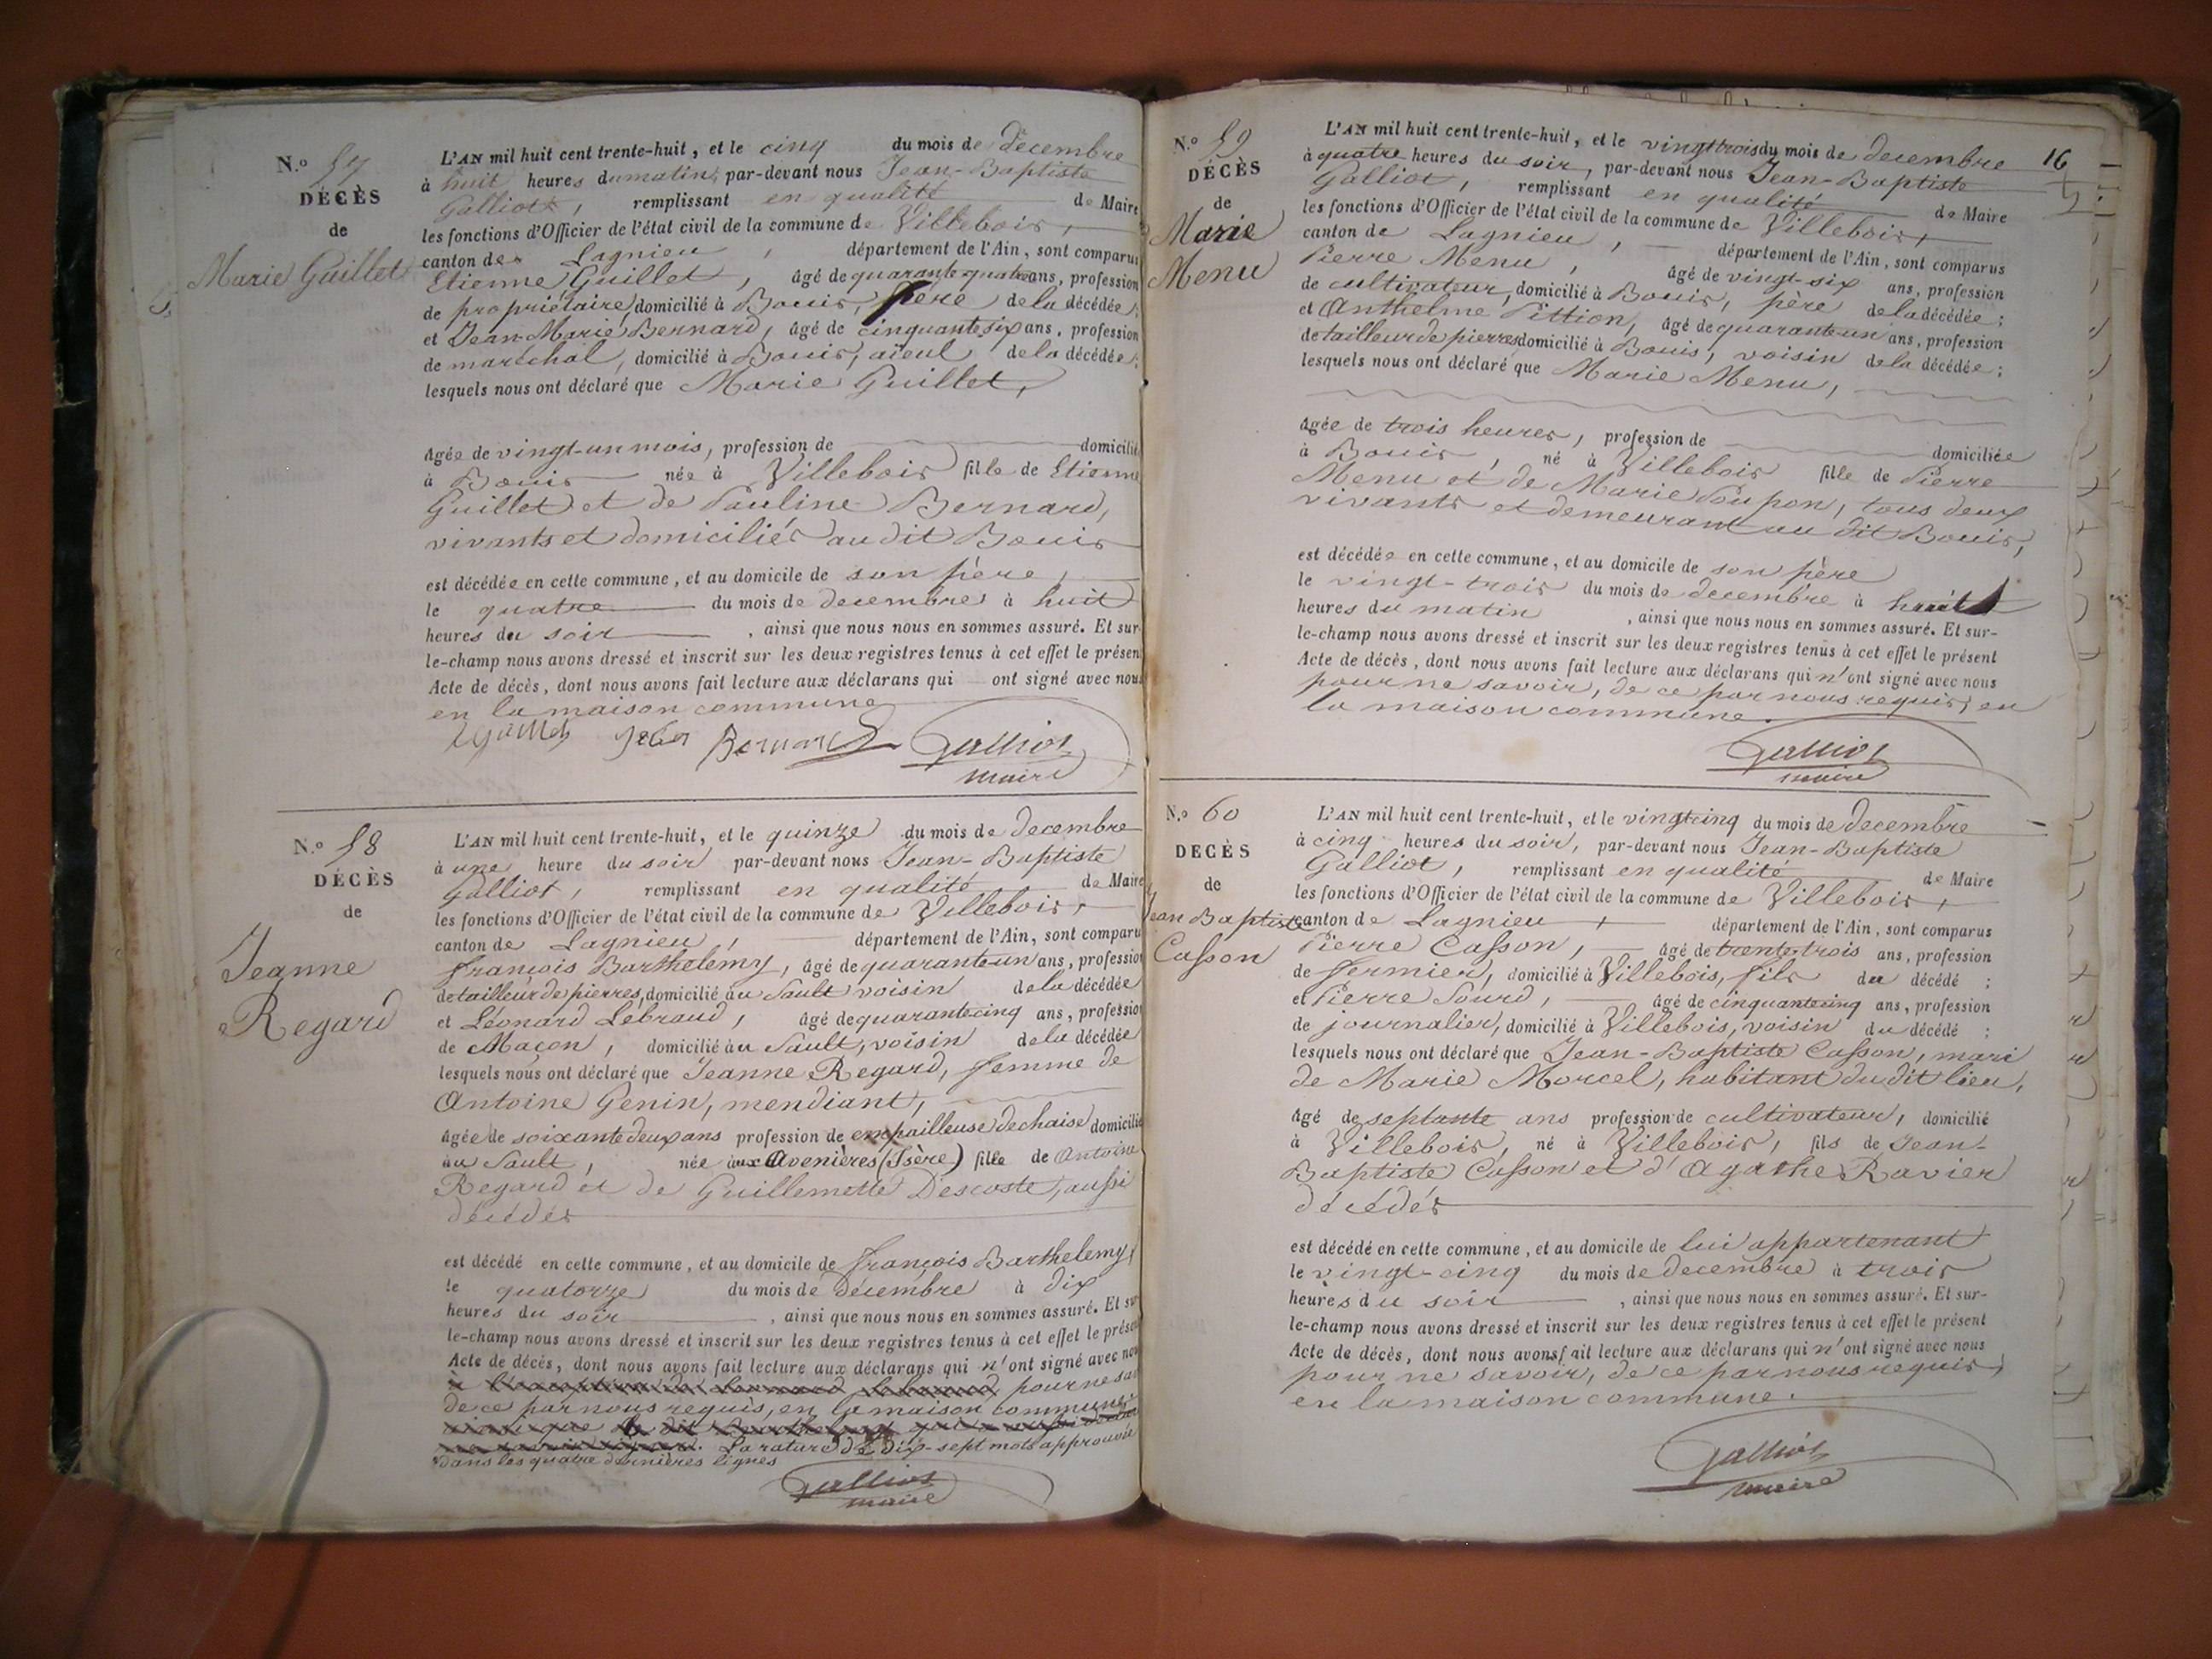 N.o 57
DÉCÈS
de
Marie Guillet
L'AN mil huit cent trente-huit, et le cinq du mois de décembre
à huit heures du matin, par-devant nous Jean-Baptiste
Galliot, remplissant en qualité de Maire
les fonctions d'Officier de l'état civil de la commune de Villebois,
canton de Lagnieu, département de l'Ain, sont comparus
Etienne Guillet, âgé de quarante quatre ans, profession
de propriétaire, domicilié à Bouis, père de la décédée;
et Jean-Marie Bernard, âgé de cinquante six ans, profession
de maréchal, domicilié à Bouis, aïeul de la décédée;
lesquels nous ont déclaré que Marie Guillet,
âgée de vingt-un mois, profession de domicilié
à Bouis née à Villebois fille de Etienne
Guillet et de Pauline Bernard,
vivants et domiciliés au dit Bouis
est décédée en cette commune, et au domicile de son père,
le quatre du mois de decembre à huit
heures du soir, ainsi que nous nous en sommes assuré. Et sur-
le-champ nous avons dressé et inscrit sur les deux registres tenus à cet effet le présen
Acte de décès, dont nous avons fait lecture aux déclarans qui ont signé avec nous
en la maison commune
Bernard Galliot
maire
N.o 58
DÉCÈS
de
Jeanne
Regard
L'AN mil huit cent trente-huit, et le quinze du mois de decembre
à une heure du soir par-devant nous Jean-Baptiste
Galliot, remplissant en qualité de Maire
les fonctions d'Officier de l'état civil de la commune de Villebois,
canton de Lagnieu, département de l'Ain, sont comparu
françois Barthelemy, âgé de quarante-un ans, profession
de tailleur de pierres, domicilié au Sault voisin de la décédée
et Léonard Lebraud, âgé de quarante cinq ans, profession
de Maçon, domicilié au Sault, voisin de la décédée
lesquels nous ont déclaré que Jeanne Regard, femme de
Antoine Genin, mendiant,
âgée de soixante deux ans profession de empailleuse de chaise domicilié
au Sault, née aux Avenières (Isère) fille de Antoine
Regard et de Guillemette Descoste, aussi
décédés
est décédé en cette commune, et au domicile de françois Barthelemy,
le quatorze du mois de décembre à dix
heures du soir, ainsi que nous nous en sommes assuré. Et sur
le-champ nous avons dressé et inscrit sur les deux registres tenus à cet effet le présen
Acte de décès, dont nous avons fait lecture aux déclarans qui n'ont signé avec nou
pour ne sa
de ce par nous requis, en la maison commune
La rature de dix-sept mots approuvée
dans les quatre dernières lignes
Galliot
maire
16
N.o 59
DÉCÈS
de
Marie
Menu
L'AN mil huit cent trente-huit, et le vingt trois du mois de decembre
à quatre heures du soir, par-devant nous Jean-Baptiste
Galliot, remplissant en qualité de Maire
les fonctions d'Officier de l'état civil de la commune de Villebois,
canton de Lagnieu, département de l'Ain, sont comparus
Pierre Menu, âgé de vingt-six ans, profession
de cultivateur, domicilié à Bouis, père de la décédée;
et Anthelme Pittion, âgé de quarante-un ans, profession
de tailleur de pierres domicilié à Bouis, voisin de la décédée;
lesquels nous ont déclaré que Marie Menu,
âgée de trois heures, profession de domiciliée
à Bouis, né à Villebois fille de Pierre
Menu et de Marie Poupon, tous deux
vivants et demeurant au dit Bouis,
est décédée en cette commune, et au domicile de son père
le vingt-trois du mois de decembre à huit
heures du matin, ainsi que nous nous en sommes assuré. Et sur-
le-champ nous avons dressé et inscrit sur les deux registres tenus à cet effet le présent
Acte de décès, dont nous avons fait lecture aux déclarans qui n'ont signé avec nous
pour ne savoir, de ce par nous requis, en
la maison commune.
Galliot
maire
N.o 60
DÉCÈS
de
Jean Baptiste
Casson
L'AN mil huit cent trente-huit, et le vingt cinq du mois de decembre
à cinq heures du soir, par-devant nous Jean-Baptiste
Galliot, remplissant en qualité de Maire
les fonctions d'Officier de l'état civil de la commune de Villebois,
canton de Lagnieu, département de l'Ain, sont comparus
Pierre Casson, âgé de trente trois ans, profession
de fermier, domicilié à Villebois, fils du décédé;
et Pierre Sourd, âgé de cinquante cinq ans, profession
de journalier, domicilié à Villebois, voisin du décédé;
lesquels nous ont déclaré que Jean-Baptiste Casson, mari
de Marie Morcel, habitant du dit lieu,
âgé de septante ans profession de cultivateur, domicilié
à Villebois, né à Villebois, fils de Jean-
Baptiste Casson et d'Agathe Ravier
décédés
est décédé en cette commune, et au domicile de lui appartenant
le vingt-cinq du mois de decembre à trois
heures du soir, ainsi que nous nous en sommes assuré. Et sur-
le-champ nous avons dressé et inscrit sur les deux registres tenus à cet effet le présent
Acte de décès, dont nous avons fait lecture aux déclarans qui n'ont signé avec nous
pour ne savoir, de ce par nous requis,
en la maison commune.
Galliot
maire